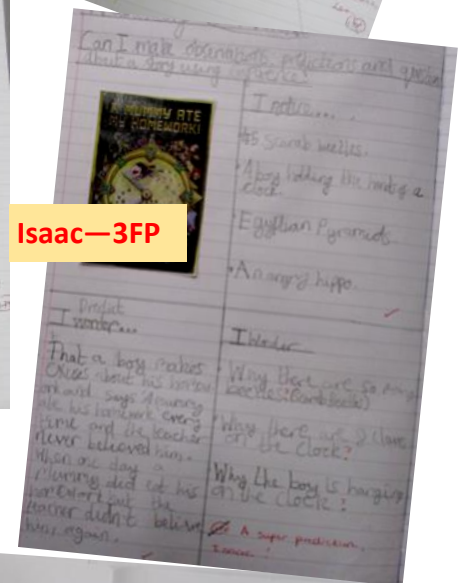 Can I make observations, predictions and question
about a story using inference?
A MUMMY ATE
MY HOMEWORK!
Isaac—3FP
I notice....
scarab beetles.
A boy holding the hand of a
clock.
Egyptian Pyramids.
An angry hippo.
Predict
I wonder...
That a boy makes
about his
and says A mummy
ate his homework every
time and the teacher
never believed him.
When one day a
Mummy did eat his
homework but the
teacher didn't believe
him again.
I wonder
Why there are so many
beetles?
Why there are
on the clock?
Why the boy is hanging
on the clock?
A super prediction,
Isaac!